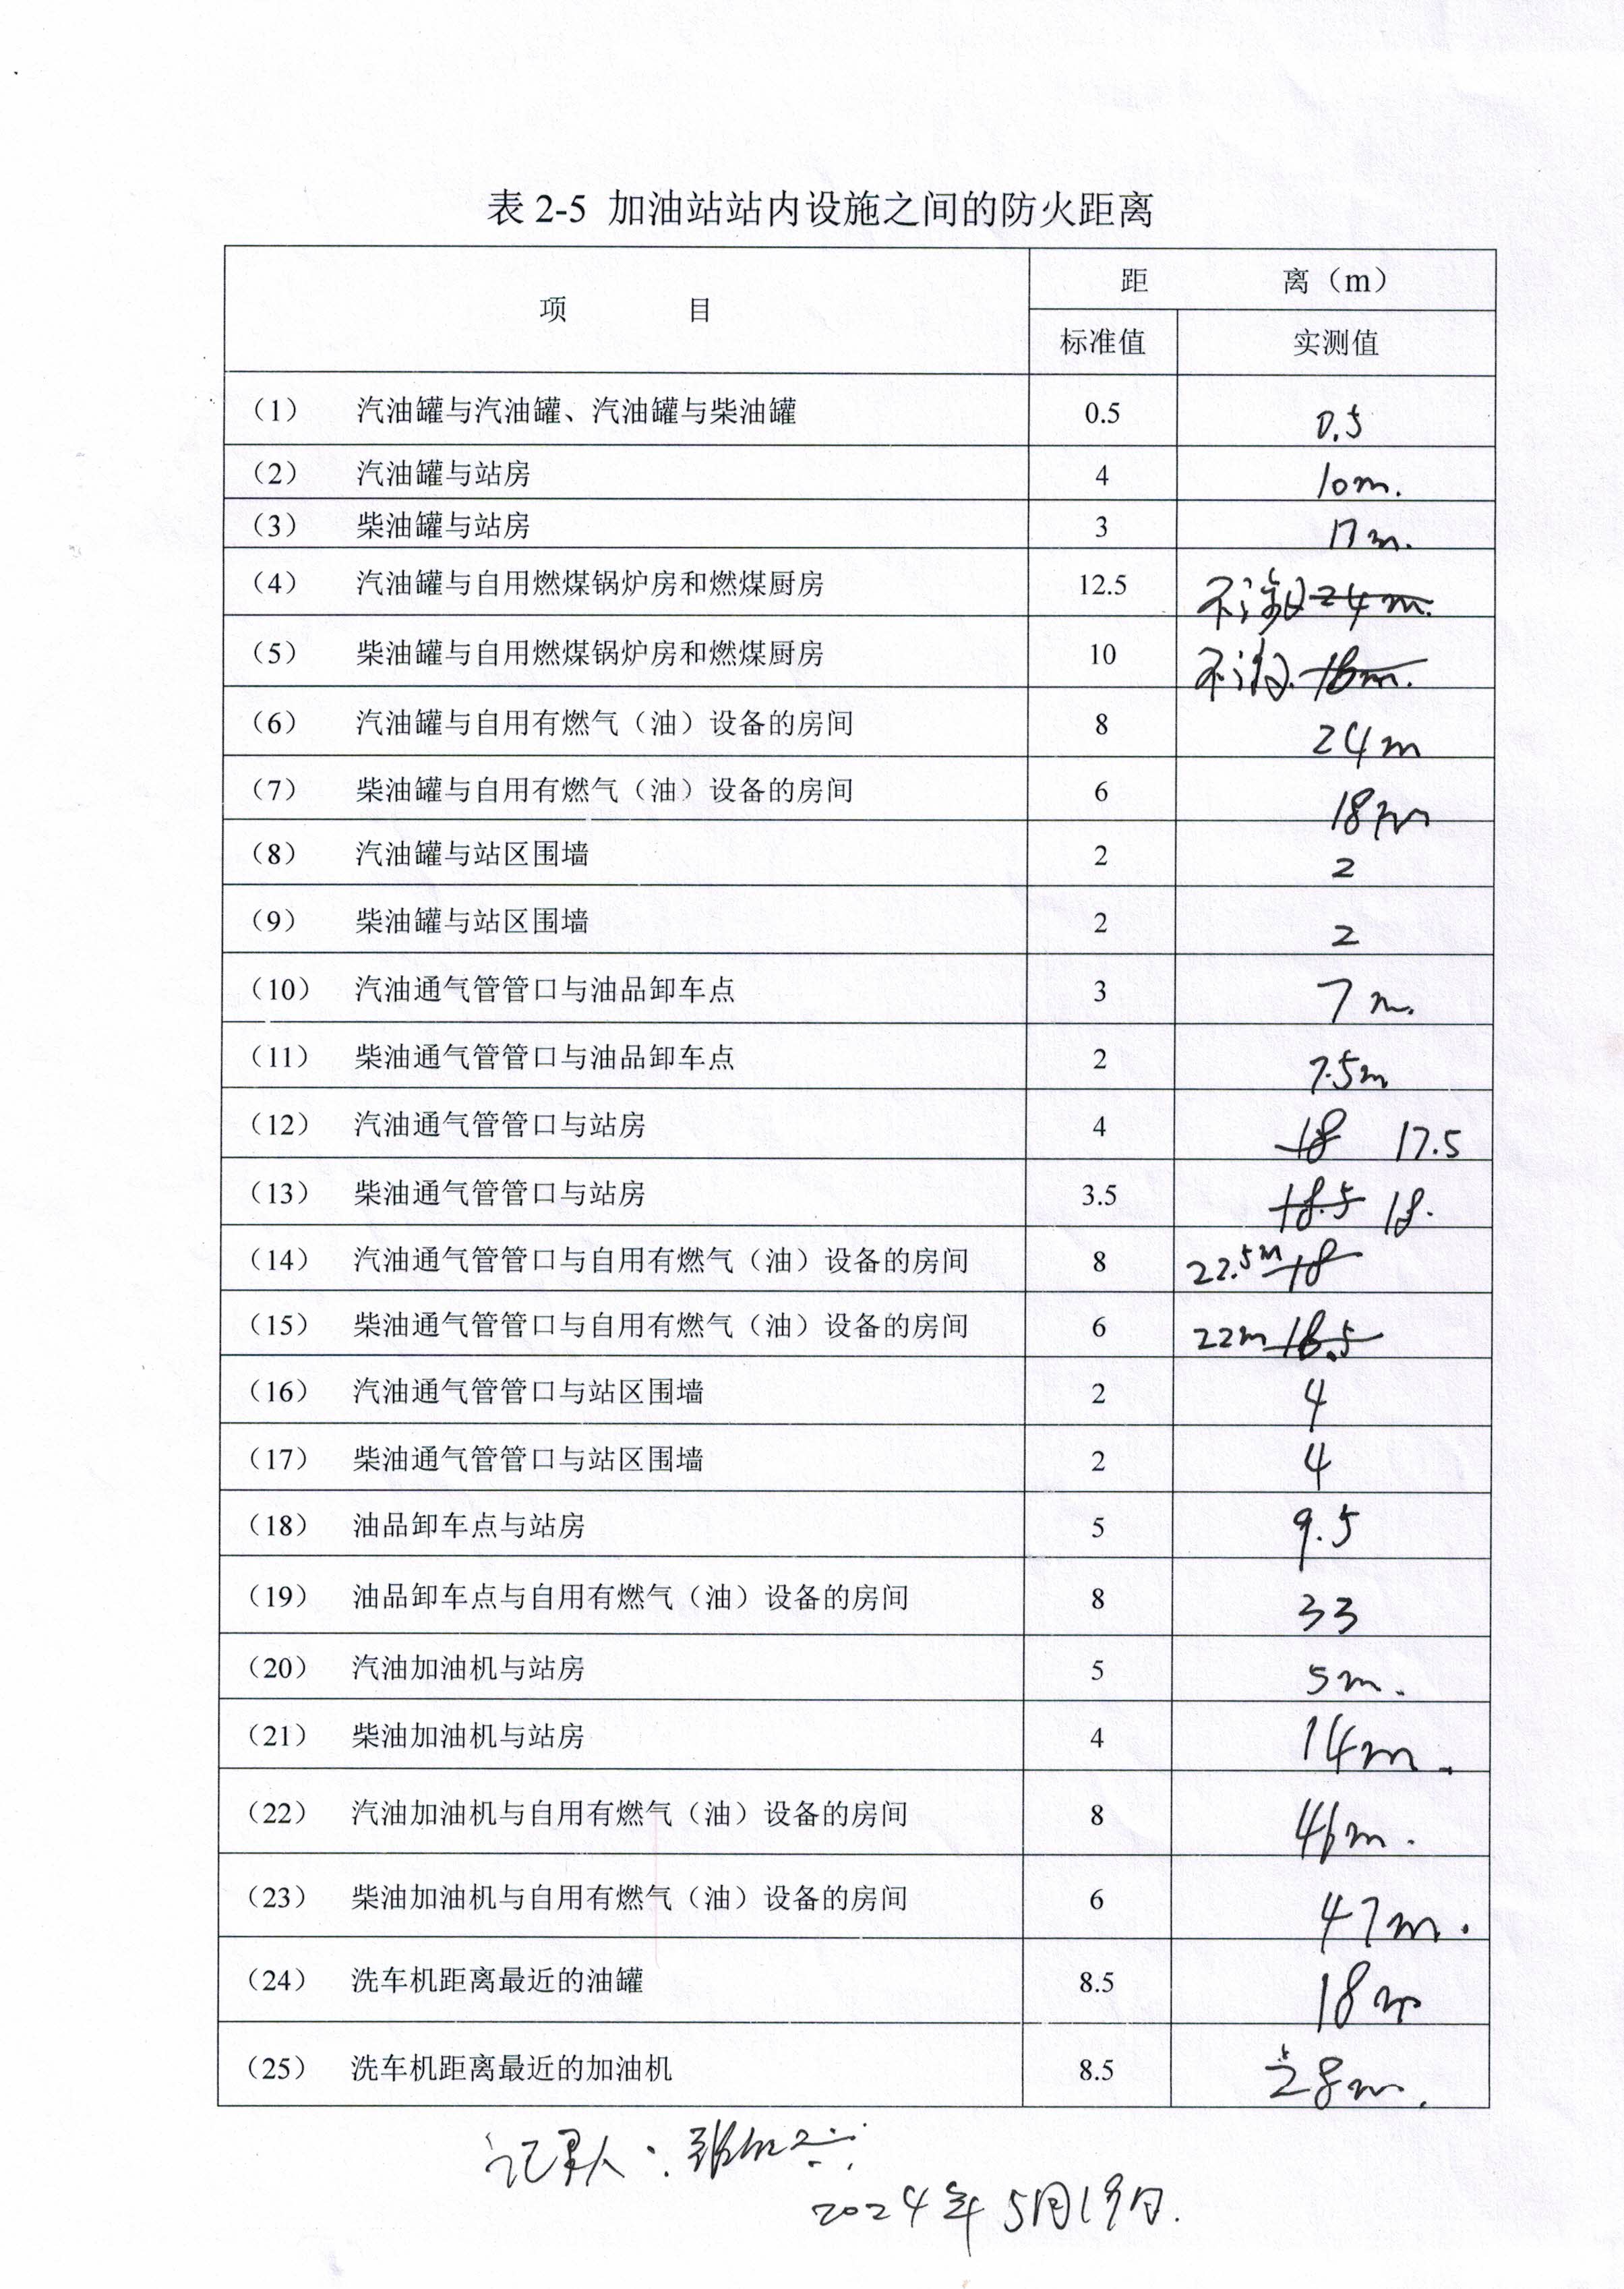 表 2-5 加油站站内设施之间的防火距离
项 目 距 离（m）
标准值 实测值
（1） 汽油罐与汽油罐、汽油罐与柴油罐 0.5 0.5
（2） 汽油罐与站房 4 10m.
（3） 柴油罐与站房 3 17m.
（4） 汽油罐与自用燃煤锅炉房和燃煤厨房 12.5 不涉及 24m.
（5） 柴油罐与自用燃煤锅炉房和燃煤厨房 10 不涉及. 18m.
（6） 汽油罐与自用有燃气（油）设备的房间 8 24m
（7） 柴油罐与自用有燃气（油）设备的房间 6 18m
（8） 汽油罐与站区围墙 2 2
（9） 柴油罐与站区围墙 2 2
（10） 汽油通气管管口与油品卸车点 3 7m.
（11） 柴油通气管管口与油品卸车点 2 7.5m
（12） 汽油通气管管口与站房 4 18 17.5
（13） 柴油通气管管口与站房 3.5 18.5 18.
（14） 汽油通气管管口与自用有燃气（油）设备的房间 8 22.5m 18
（15） 柴油通气管管口与自用有燃气（油）设备的房间 6 22m 18.5
（16） 汽油通气管管口与站区围墙 2 4
（17） 柴油通气管管口与站区围墙 2 4
（18） 油品卸车点与站房 5 9.5
（19） 油品卸车点与自用有燃气（油）设备的房间 8 33
（20） 汽油加油机与站房 5 5m.
（21） 柴油加油机与站房 4 14m.
（22） 汽油加油机与自用有燃气（油）设备的房间 8 46m.
（23） 柴油加油机与自用有燃气（油）设备的房间 6 47m.
（24） 洗车机距离最近的油罐 8.5 18m
（25） 洗车机距离最近的加油机 8.5 28m.
记录人：
2024年5月19日.